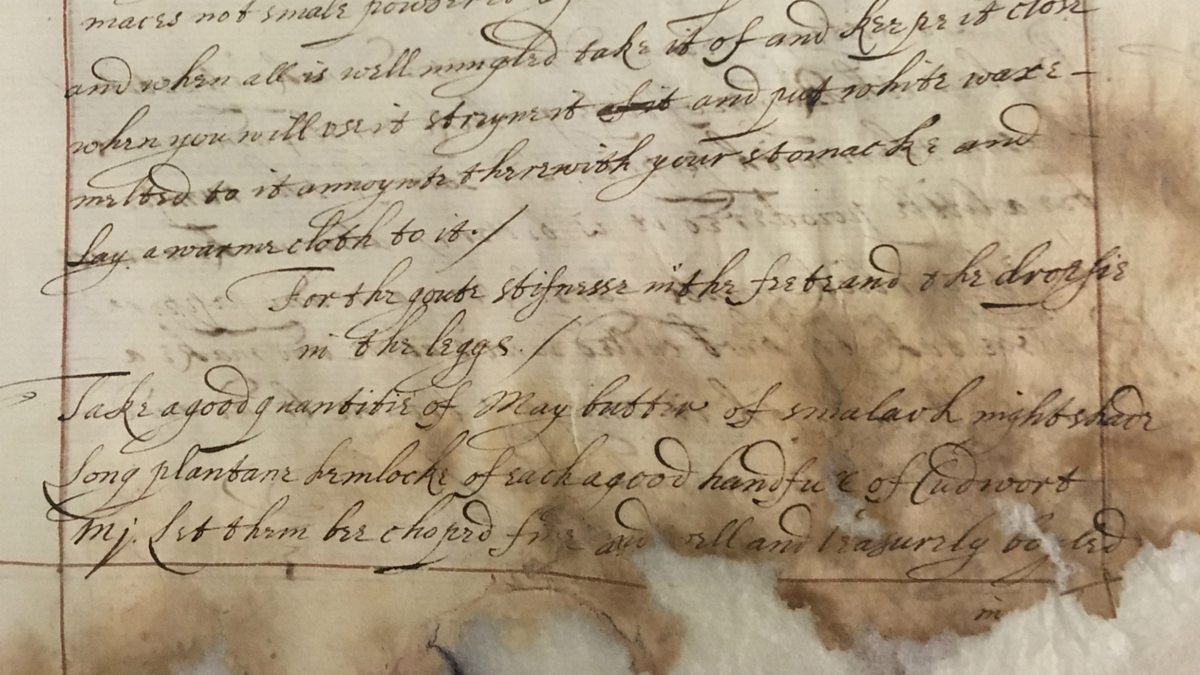 maces not smale powdered
and when all is well mingled take it of and keepe it close
when you will use it strayne it and put white waxe –
melted to it annoynte therewith your stomacke and
Lay a warme cloth to it. /
For the goute stifnesse in the feete and the dropsie
in the leggs. /
Take a good quantitie of May butter of smalach nightshade
Long plantane hemlocke of each a good handfull of Cudwort
Mj. Let them bee choped fine and well and leasurely boyled
in